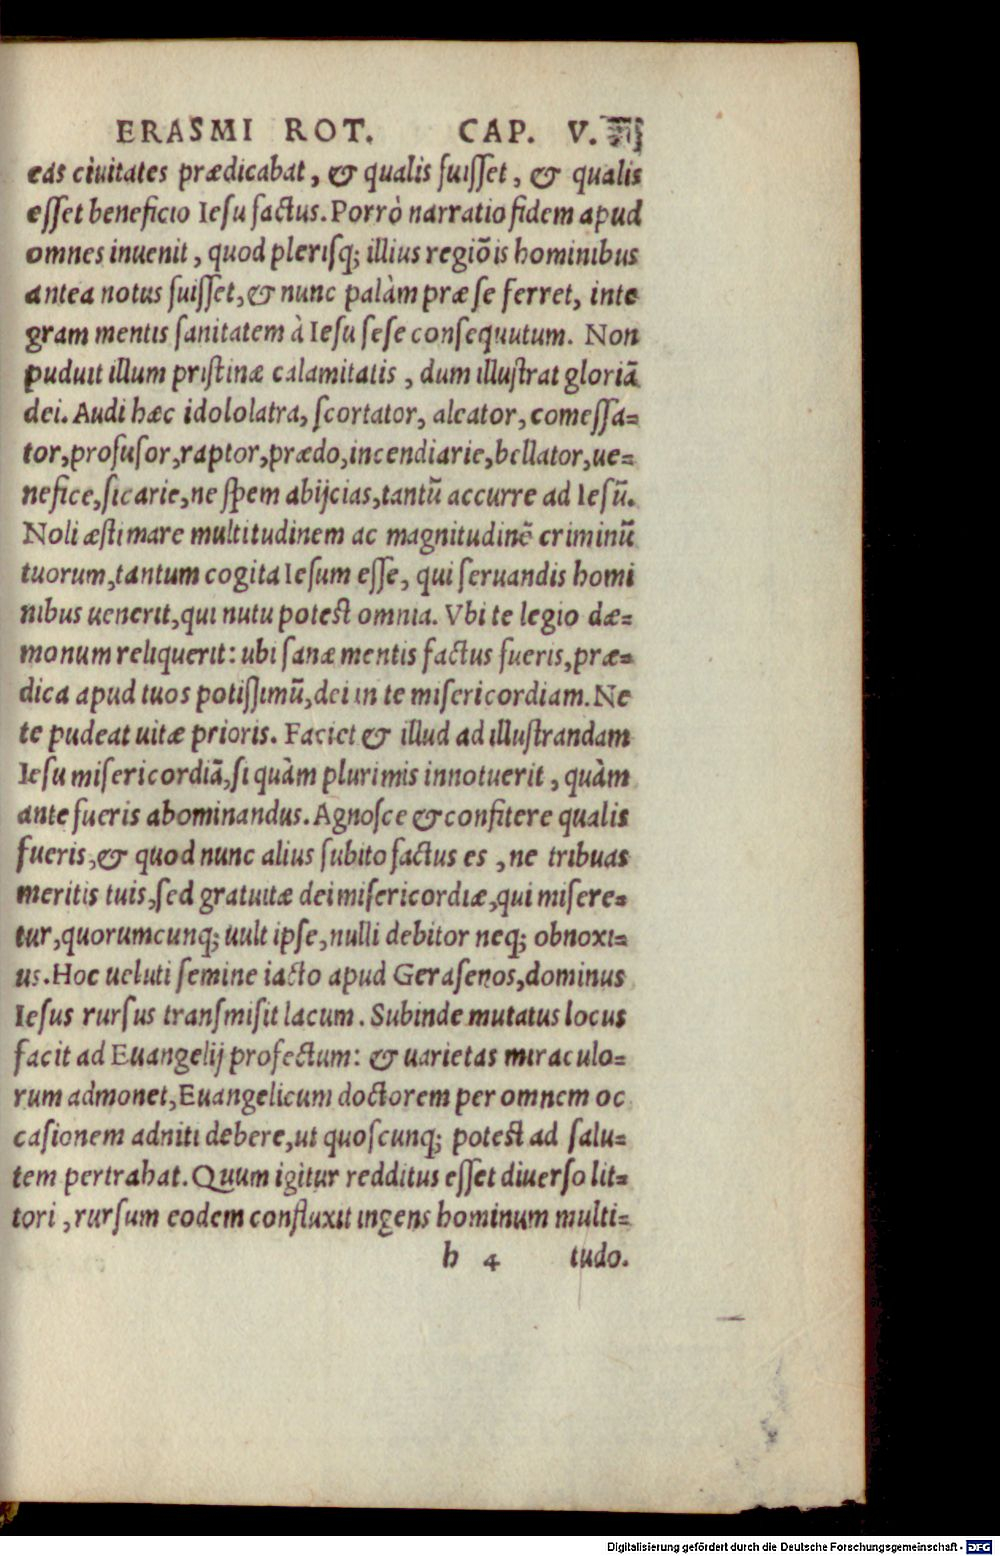 ERASMI ROT. CAP. V.
eas ciuitates prædicabat, & qualis fuisset, & qualis
esset beneficio Iesu factus. Porrò narratio fidem apud
omnes inuenit, quod plerisq; illius regiōis hominibus
antea notus fuisset, & nunc palàm præ se ferret, inte
gram mentis sanitatem à Iesu sese consequutum. Non
puduit illum pristinæ calamitatis, dum illustrat gloriā
dei. Audi hæc idololatra, scortator, aleator, comessa-
tor, profusor, raptor, prædo, incendiarie, bellator, ue-
nefice, sicarie, ne spem abijcias, tantū accurre ad Iesū.
Noli æstimare multitudinem ac magnitudinē criminū
tuorum, tantum cogita Iesum esse, qui seruandis homi
nibus uenerit, qui nutu potest omnia. Vbi te legio dæ-
monum reliquerit: ubi sanæ mentis factus fueris, præ-
dica apud tuos potissimū, dei in te misericordiam. Ne
te pudeat uitæ prioris. Faciet & illud ad illustrandam
Iesu misericordiā, si quàm plurimis innotuerit, quàm
ante fueris abominandus. Agnosce & confitere qualis
fueris, & quod nunc alius subito factus es, ne tribuas
meritis tuis, sed gratuitæ dei misericordiæ, qui misere-
tur, quorumcunq; uult ipse, nulli debitor neq; obnoxi-
us. Hoc ueluti semine iacto apud Gerasenos, dominus
Iesus rursus transmisit lacum. Subinde mutatus locus
facit ad Euangelij profectum: & uarietas miraculo-
rum admonet, Euangelicum doctorem per omnem oc
casionem adniti debere, ut quoscunq; potest ad salu-
tem pertrahat. Quum igitur redditus esset diuerso lit-
tori, rursum eodem confluxit ingens hominum multi-
b 4 tudo.
Digitalisierung gefördert durch die Deutsche Forschungsgemeinschaft - DFG